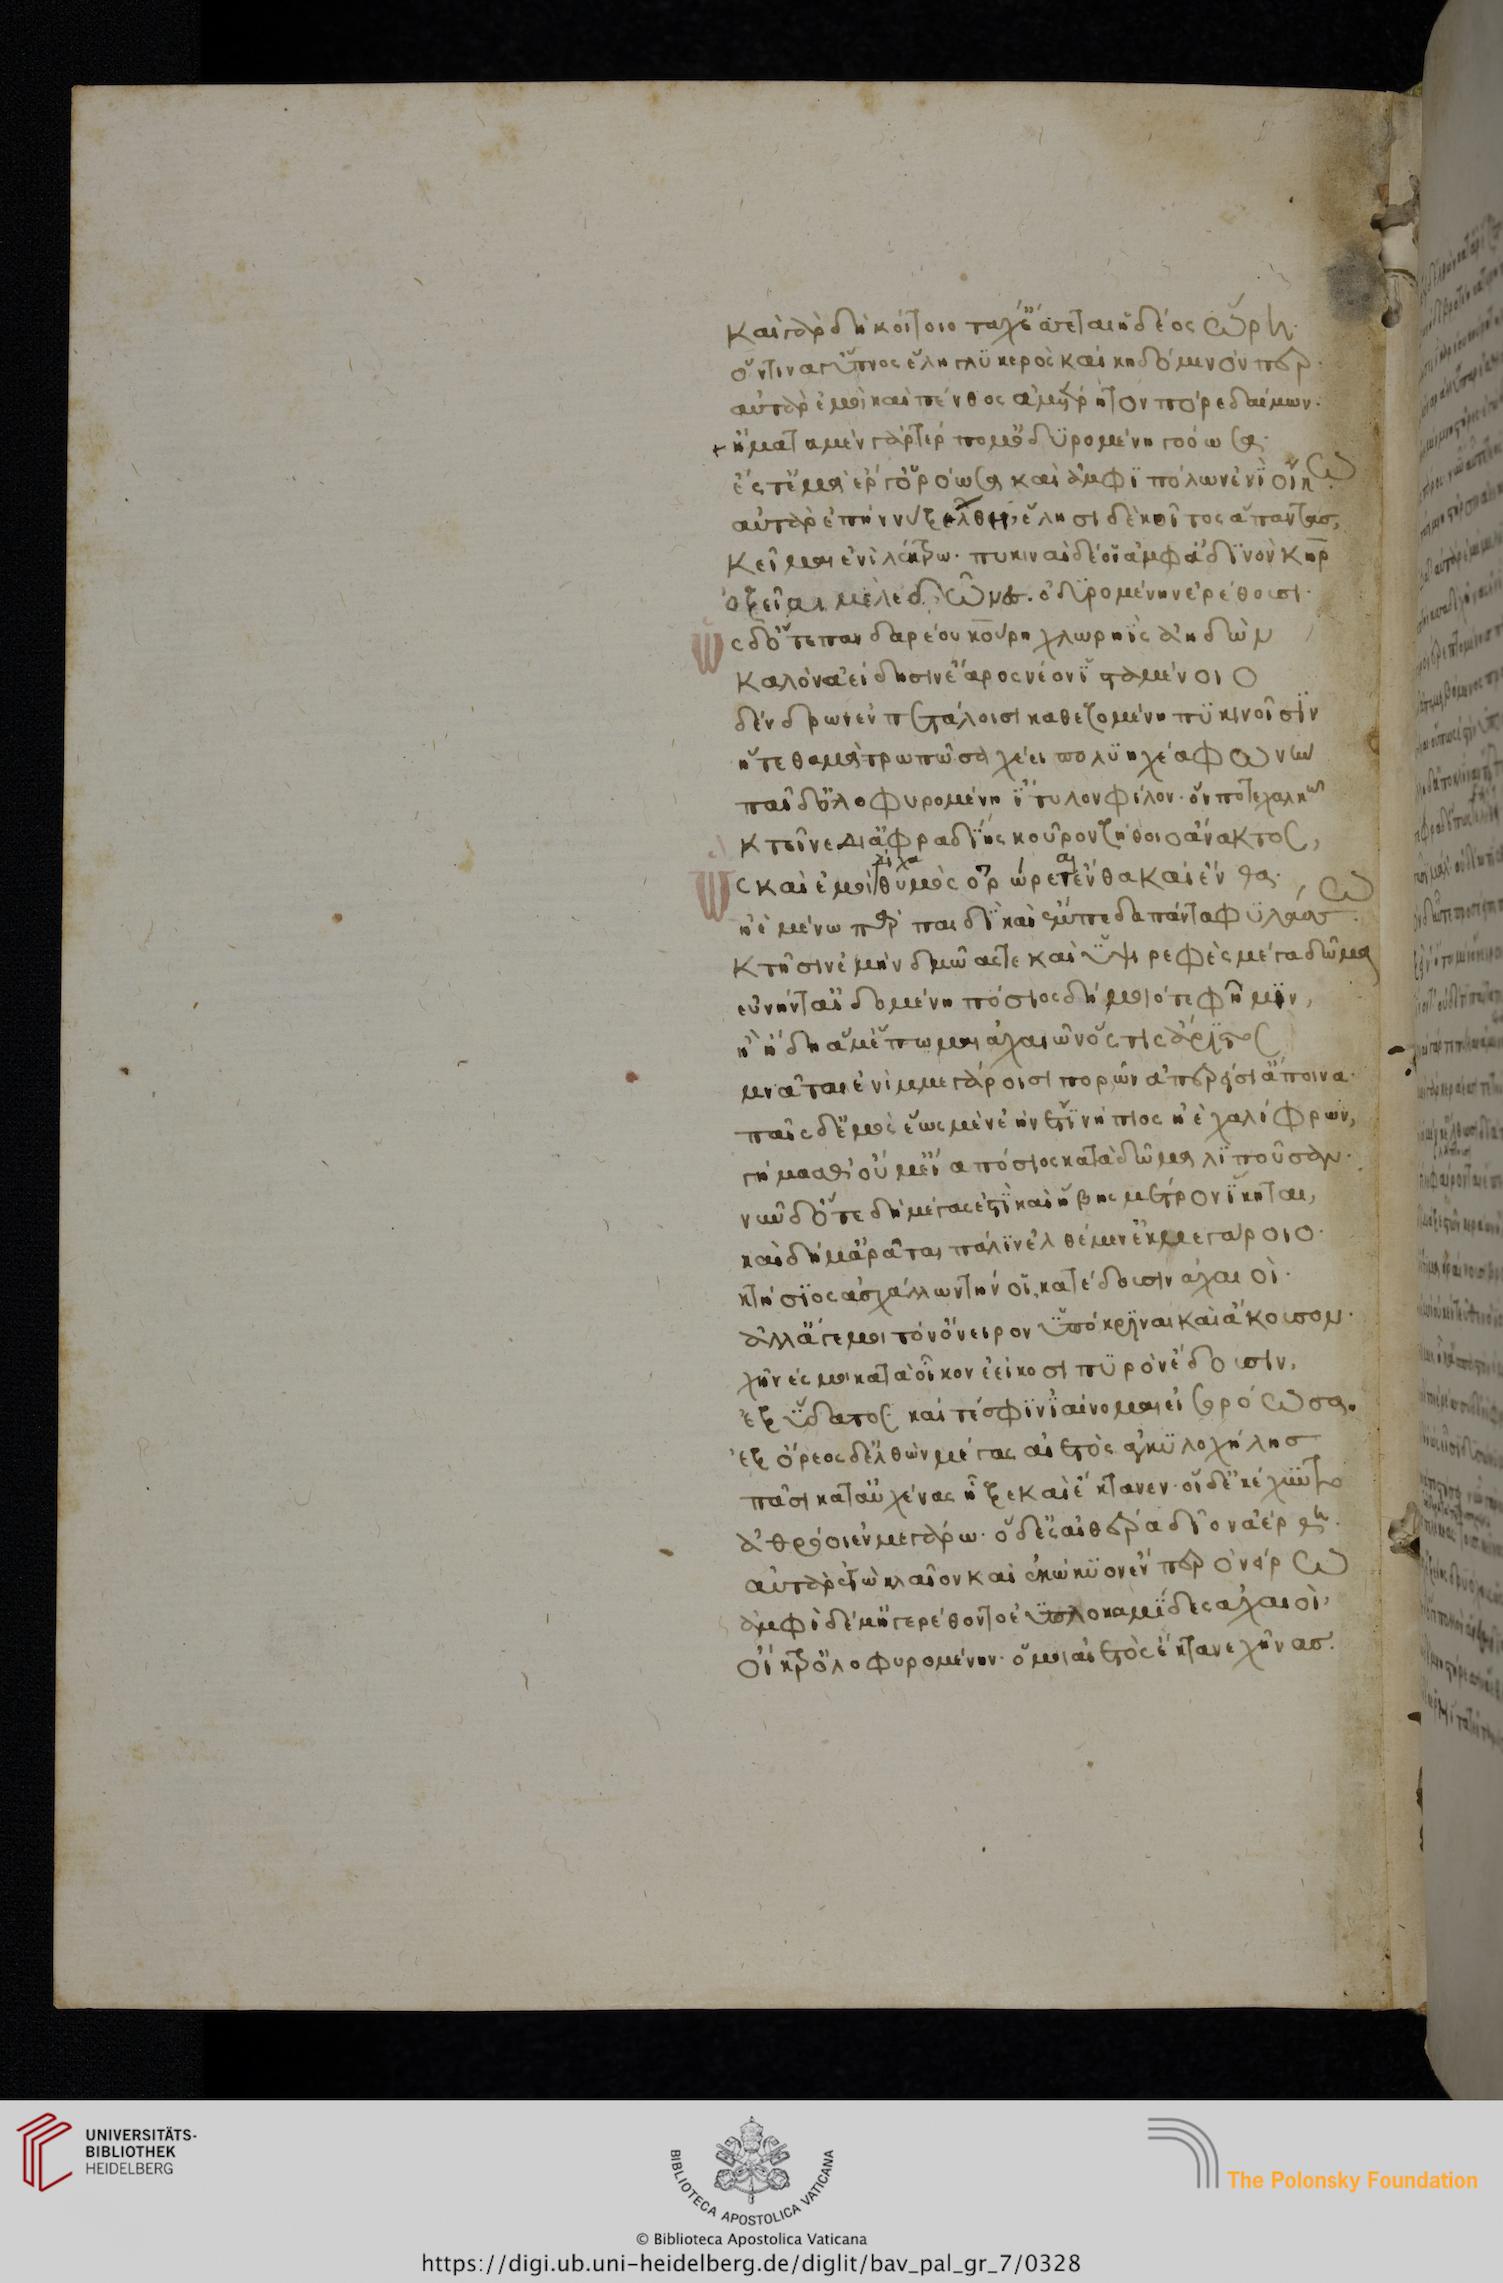 καὶ γὰρ δὴ κοίτοιο τάχ' ἔσσεται ἡδέος ὥρη·
ὅντινά γ' ὕπνος ἕλῃ γλυκερὸς καὶ κηδόμενόν περ·
αὐτὰρ ἐμοὶ καὶ πένθος ἀμέτρητον πόρε δαίμων·
ἤματα μὲν γὰρ τέρπομ' ὀδυρομένη γοόωσα·
ἔς τ' ἐμὰ ἔργ' ὁρόωσα καὶ ἀμφιπόλων ἐνὶ οἴκω·
αὐτὰρ ἐπὴν νὺξ ἔλθη, ἕλησι δὲ κοῖτος ἅπαντας,
κεῖμαι ἐνὶ λέκτρω· πυκιναὶ δέ οἱ ἀμφ' ἁδινὸν κῆρ
ὀξεῖαι μελεδῶναι ὀδυρομένην ἐρέθουσι·
ὡς δ' ὅτε πανδαρέου κούρη χλωρηῒς ἀηδὼν
καλὸν ἀείδησιν ἔαρος νέον ἱσταμένοιο
δένδρων ἐν πετάλοισι καθεζομένη πυκινοῖσιν
ἥ τε θαμὰ τρωπῶσα χέει πολυηχέα φωνὴν
παῖδ' ὀλοφυρομένη ἴτυλον φίλον· ὅν ποτε χαλκῶ
κτεῖνε δι' ἀφραδίης κοῦρον ζήθοιο ἄνακτος,
ὣς καὶ ἐμοὶ δίχα θυμὸς ὀρώρεται ἔνθα καὶ ἔνθα·
ἠὲ μένω παρὰ παιδὶ καὶ ἔμπεδα πάντα φυλάσσω·
κτῆσιν ἐμὴν δμῶάς τε καὶ ὑψιρεφὲς μέγα δῶμα
εὐνήν τ' αἰδομένη πόσιος δήμοιό τε φῆμιν,
ἢ ἤδη ἅμ' ἕπωμαι ἀχαιῶν ὅς τις ἄριστος
μνᾶται ἐνὶ μμεγάροισι πορὼν ἀπερείσι' ἄποινα·
παῖς δ' ἐμὸς ἕως μὲν ἔην ἔτι νήπιος ἠὲ χαλίφρων,
γήμασθ' οὔ μ' εἴα πόσιος κατὰ δῶμα λιποῦσαν·
νῦν δ' ὅτε δὴ μέγας ἐστὶ καὶ ἥβης μέτρον ἱκῆται,
καὶ δή μ' ἀρᾶται πάλιν ἐλθέμεν ἐκ μεγάροιο·
κτήσιος ἀσχάλλων τήν οἱ κατέδουσιν ἀχαιοί·
ἀλλ' ἄγε μοι τὸν ὄνειρον ὑπόκριναι καὶ ἄκουσον·
χῆνές μοι κατὰ οἶκον ἐείκοσι πυρὸν ἔδουσιν,
ἐξ ὕδατος καί τέ σφιν ἰαίνομαι εἰσορόωσα.
ἐξ ὄρεος δ' ἐλθὼν μέγας αἰετὸς ἀγκυλοχήλης
πᾶσι κατ' αὐχένας ἧξε καὶ ἔκτανεν· οἱ δ' ἐκέχυντο
ἀθρόοι ἐν μεγάρω· ὁ δ' ἐς αἰθέρα δῖον ἀέρθη·
αὐτὰρ ἐγὼ κλαῖον καὶ ἐκώκυον ἔν περ ὀνείρω
ἀμφὶ δέ μ' ἠγερέθοντο ἐϋπλοκαμῖδες ἀχαιοί,
οἴκτρ' ὀλοφυρομένην· ὅ μοι αἰετὸς ἔκτανε χῆνας.
UNIVERSITÄTS-
BIBLIOTHEK
HEIDELBERG
BIBLIOTECA APOSTOLICA VATICANA
The Polonsky Foundation
© Biblioteca Apostolica Vaticana
https://digi.ub.uni-heidelberg.de/diglit/bav_pal_gr_7/0328